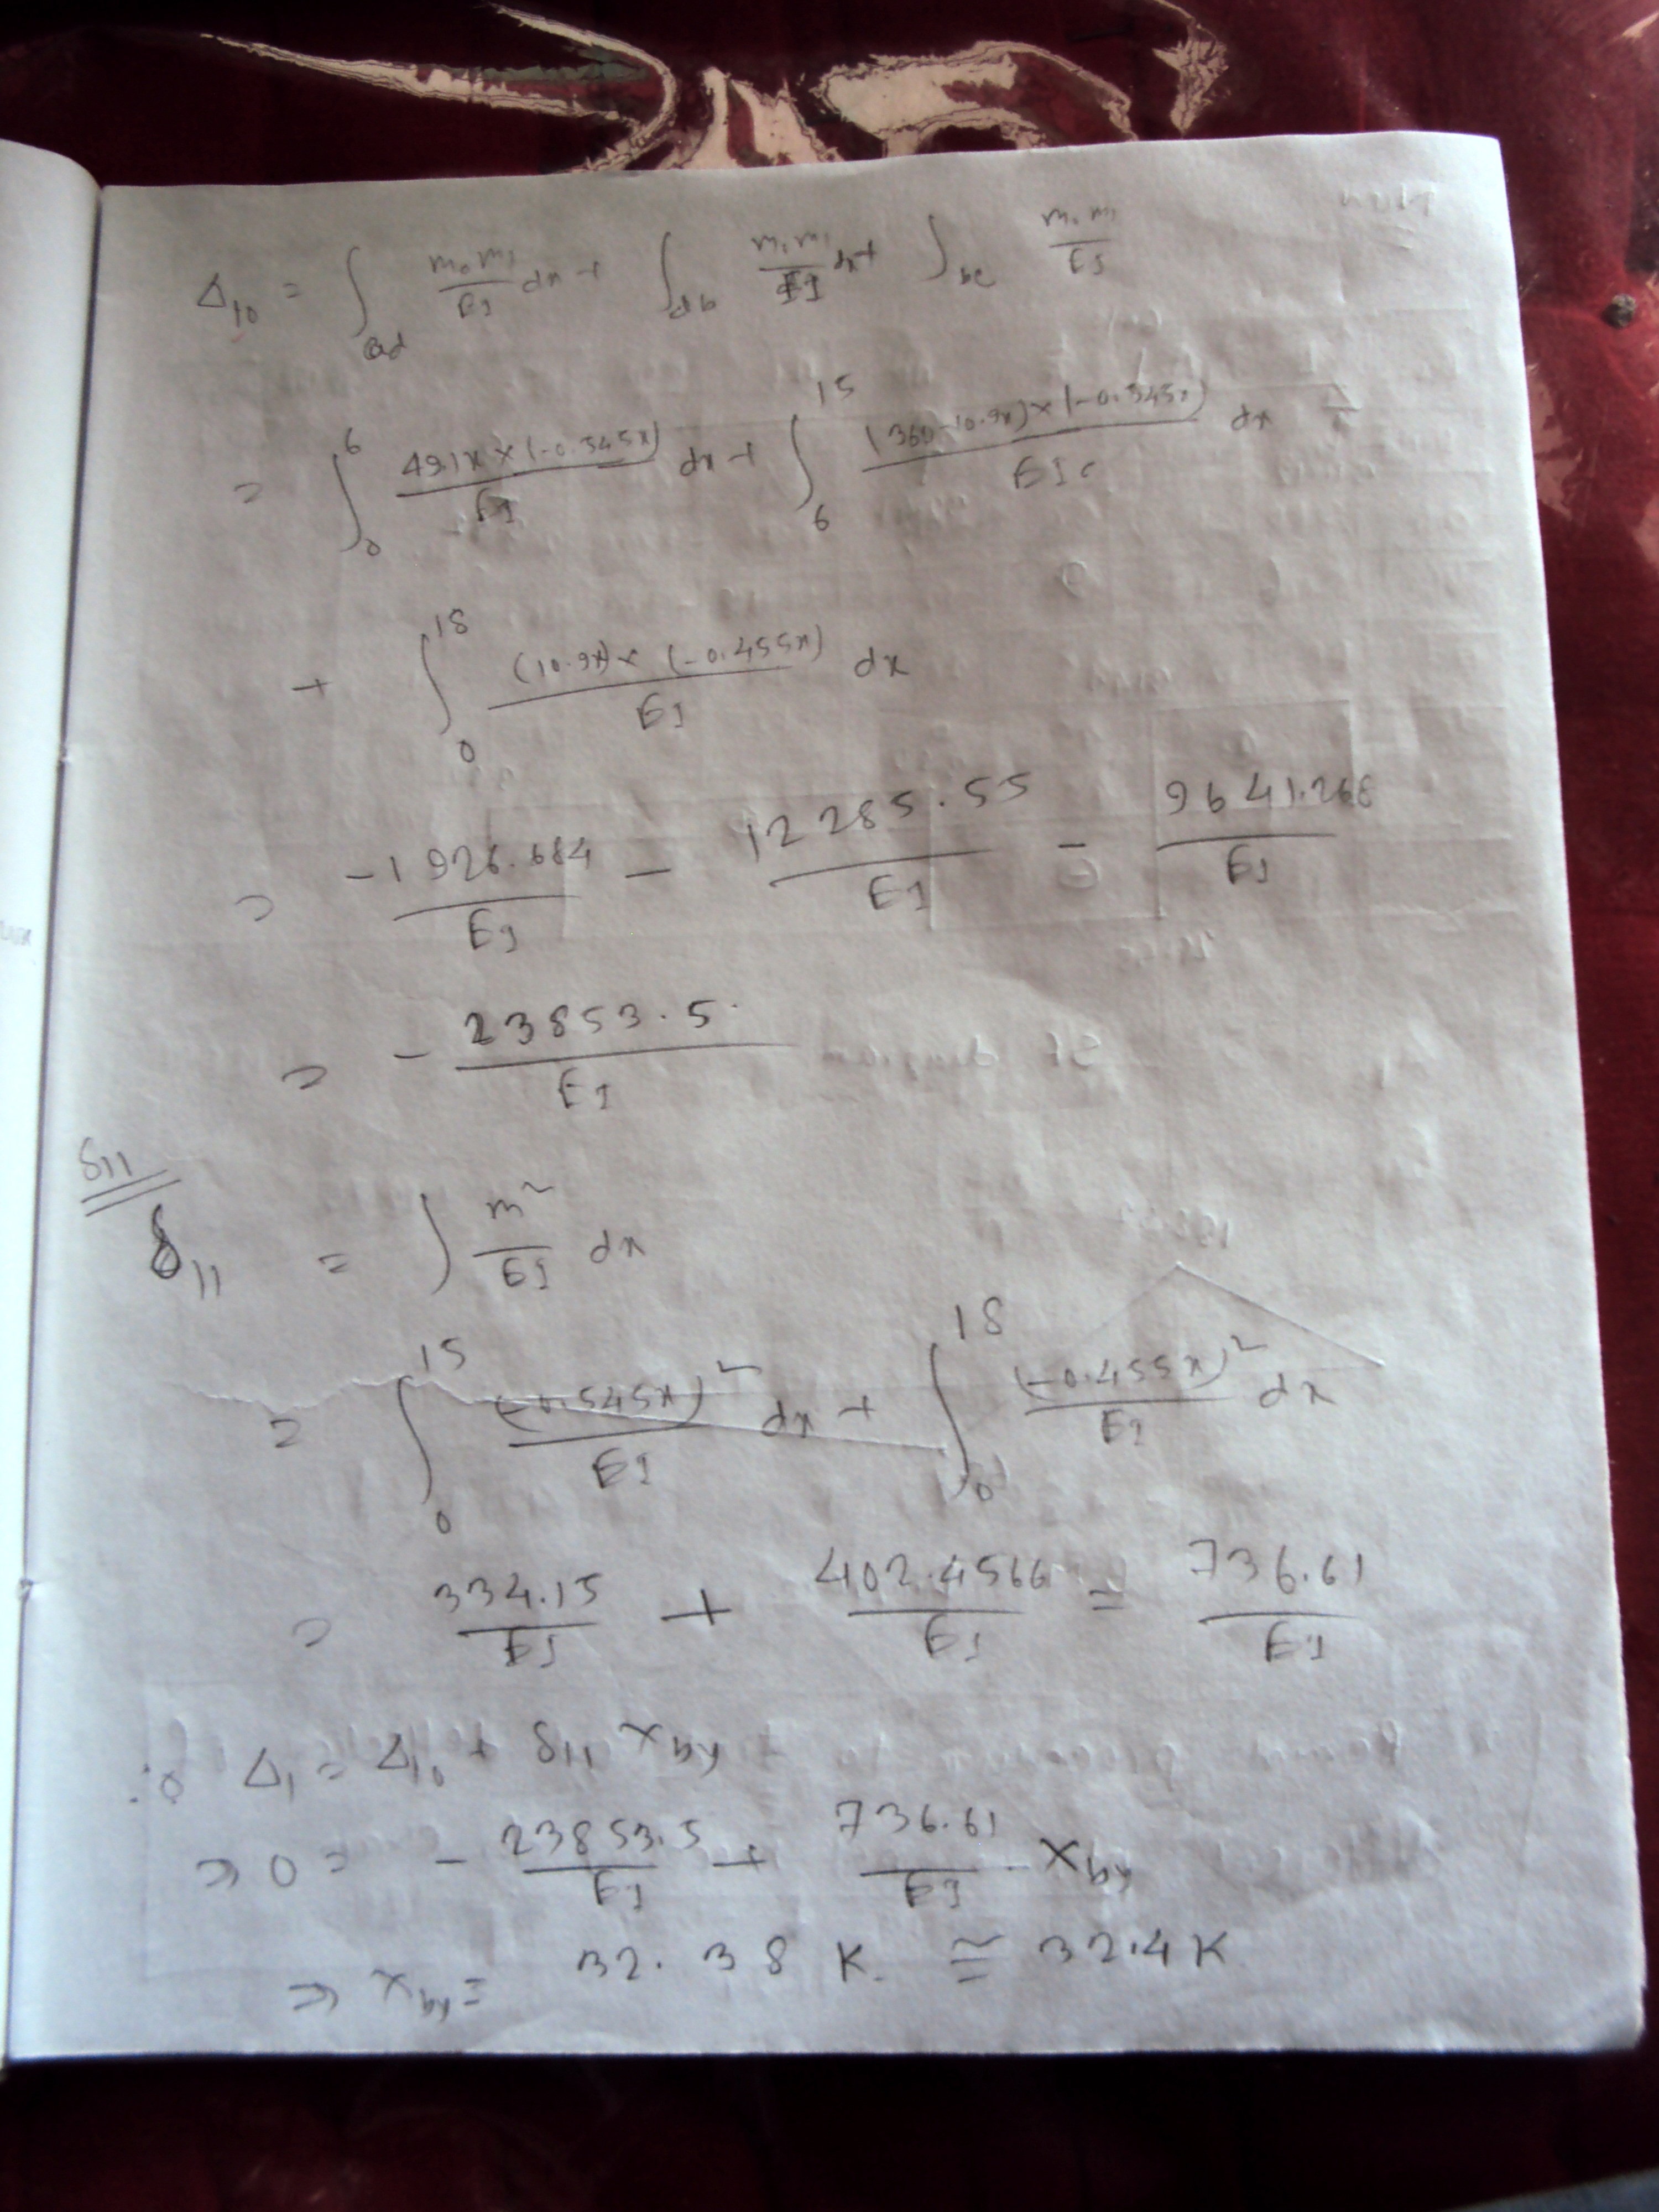 Δ₁₀ = ∫ad m₀m₁/EI dx + ∫db m₀m₁/EI dx + ∫bc m₀m₁/EI
= ∫₀⁶ 49.1x × (-0.545x)/EI dx + ∫₆¹⁵ (360-10.9x) × (-0.545x)/EI dx
+ ∫₀¹⁸ (10.9x) × (-0.455x)/EI dx
= -1926.684/EI - 12285.55/EI - 9641.268/EI
= - 23853.5/EI
δ₁₁
δ₁₁ = ∫ m²/EI dx
= ∫₀¹⁵ (-0.545x)²/EI dx + ∫₀¹⁸ (-0.455x)²/EI dx
= 334.15/EI + 402.4566/EI = 736.61/EI
∴ Δ₁ = Δ₁₀ + δ₁₁ Xby
⇒ 0 = - 23853.5/EI + 736.61/EI · Xby
⇒ Xby = 32.38 K. ≅ 32.4 K